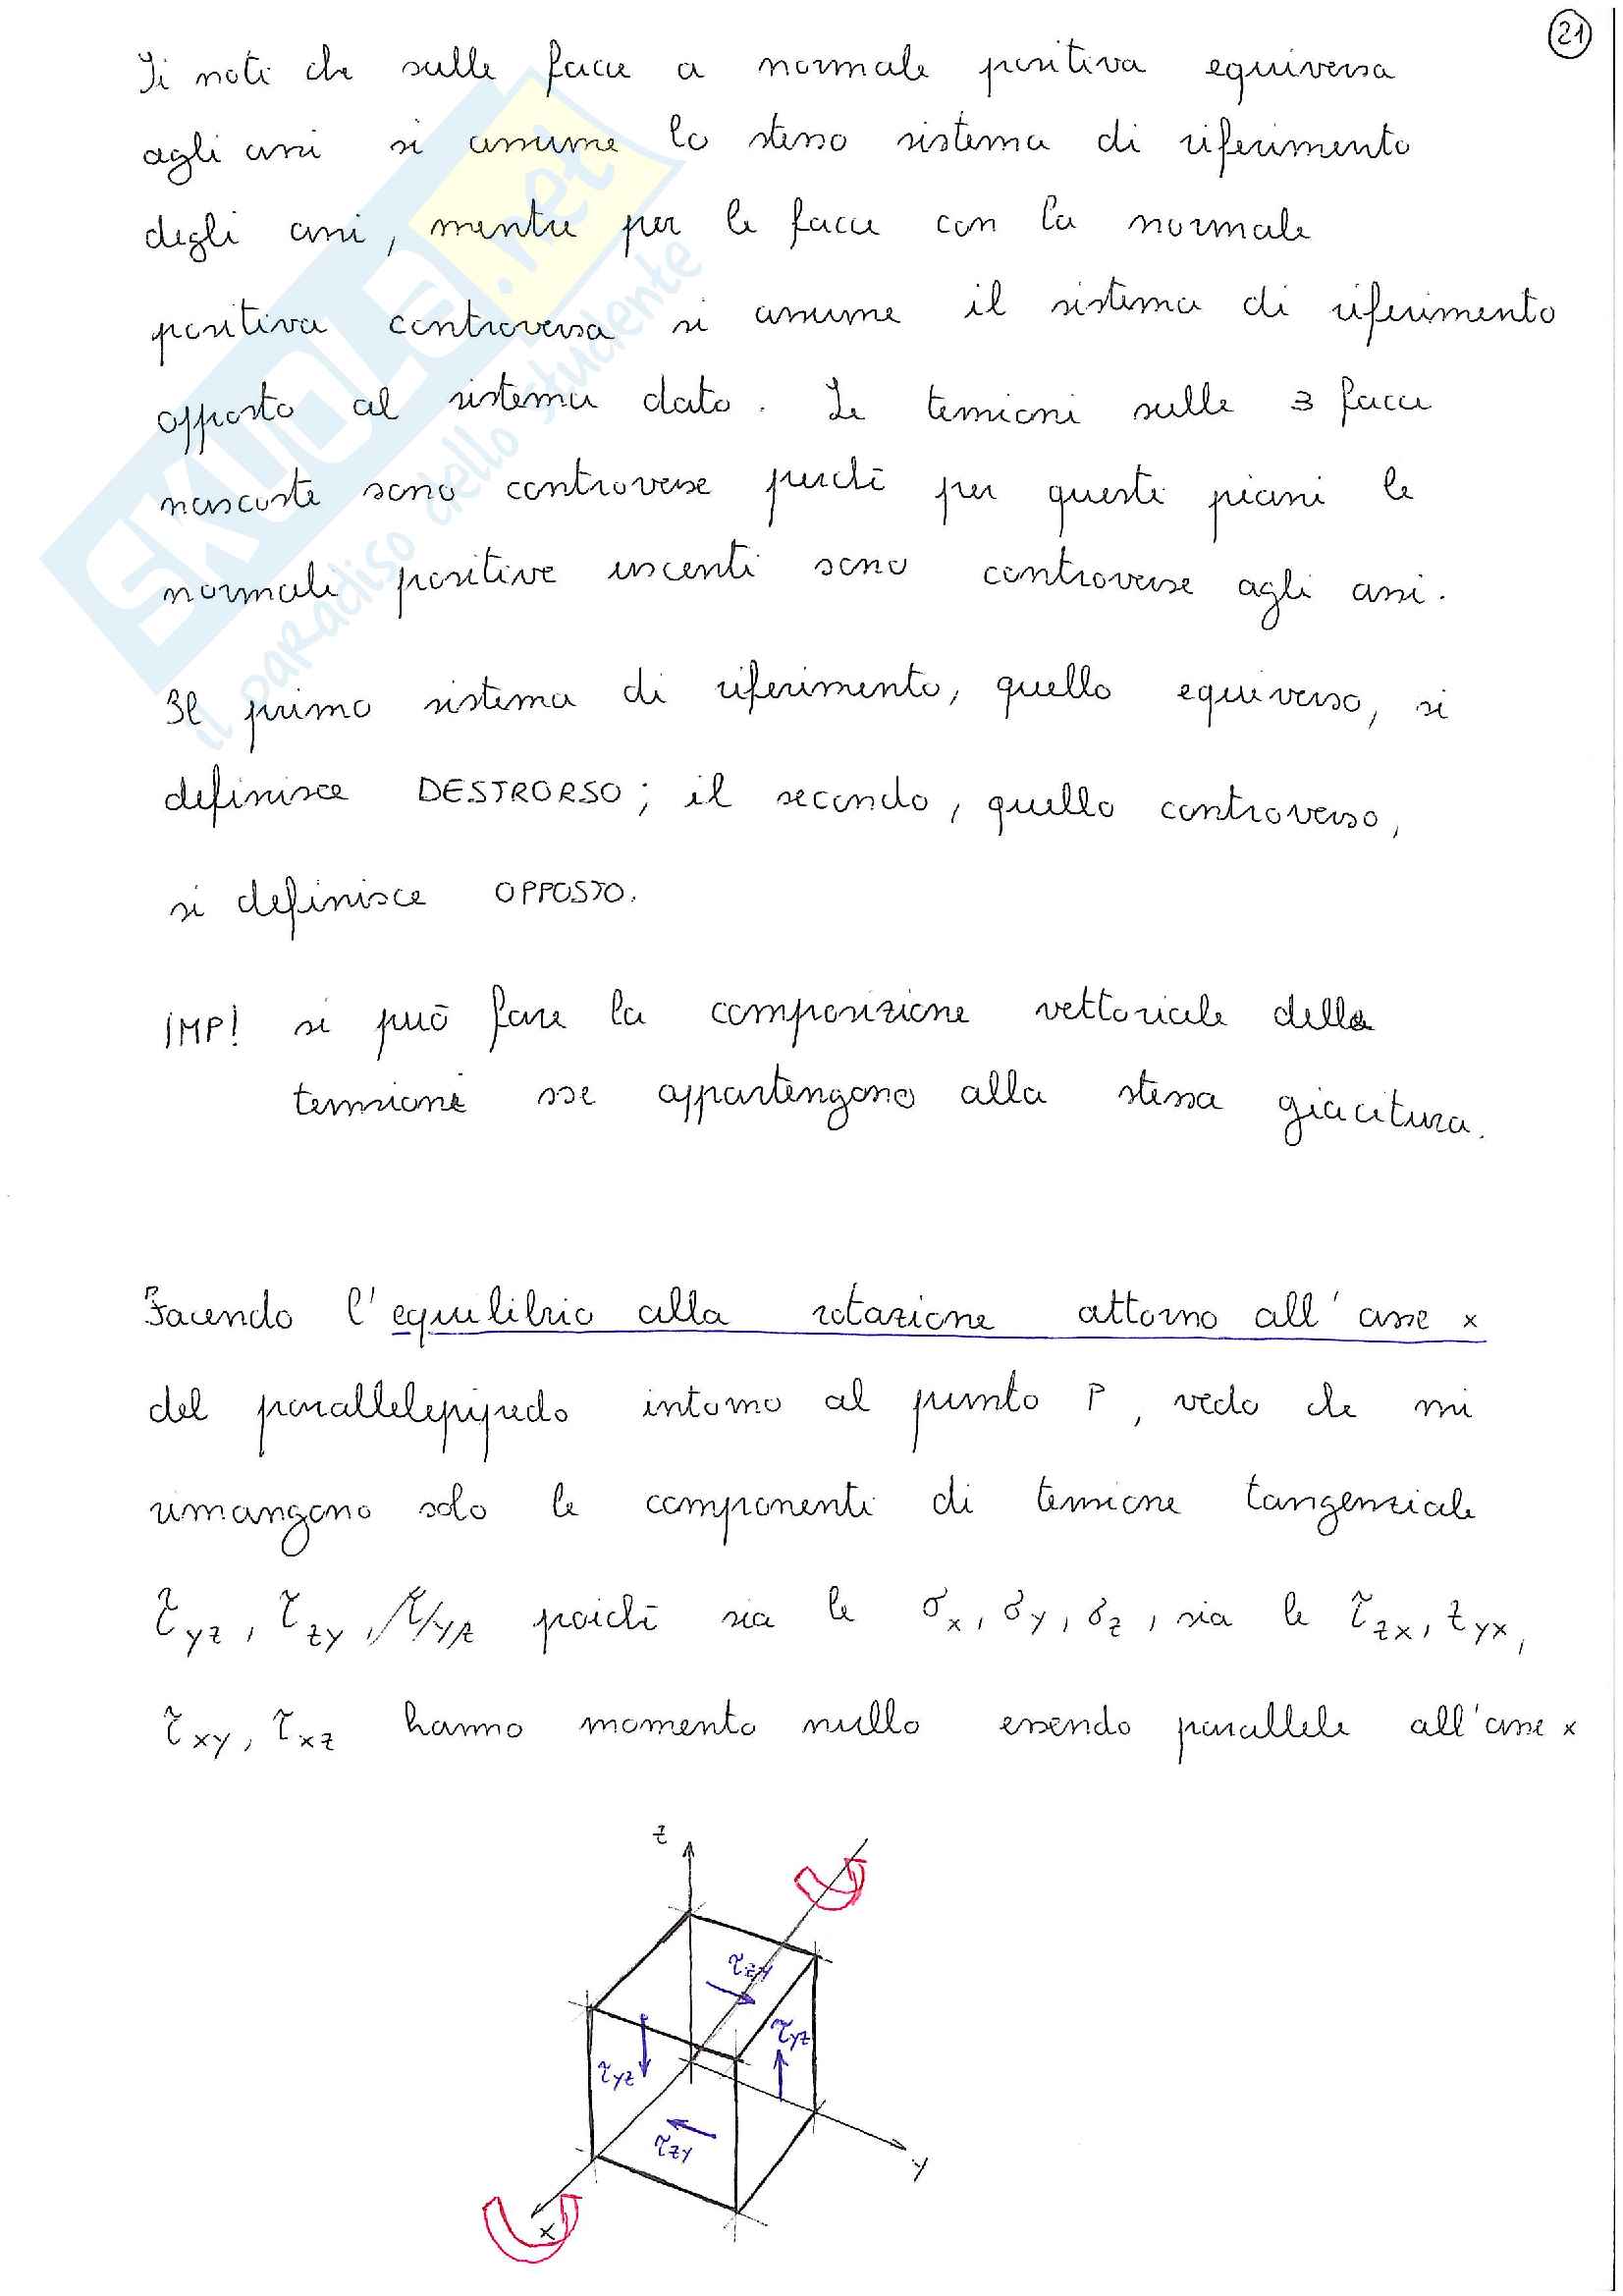 21
Si noti che sulle facce a normale positiva equiversa
agli assi si assume lo stesso sistema di riferimento
degli assi, mentre per le facce con la normale
positiva controversa si assume il sistema di riferimento
opposto al sistema dato. Le tensioni sulle 3 facce
nascoste sono controverse perchè per questi piani le
normali positive uscenti sono controverse agli assi.
Il primo sistema di riferimento, quello equiverso, si
definisce DESTRORSO; il secondo, quello controverso,
si definisce OPPOSTO.
IMP! si può fare la composizione vettoriale delle
tensioni sse appartengono alla stessa giacitura.
Facendo l'equilibrio alla rotazione attorno all'asse x
del parallelepipedo intorno al punto P, vedo che mi
rimangono solo le componenti di tensione tangenziale
τyz, τzy, poichè sia le σx, σy, σz, sia le τzx, τyx,
τxy, τxz hanno momento nullo essendo parallele all'asse x
z
τzy
τyz
τyz
τzy
y
x
SKUOLA.net
il paradiso dello studente